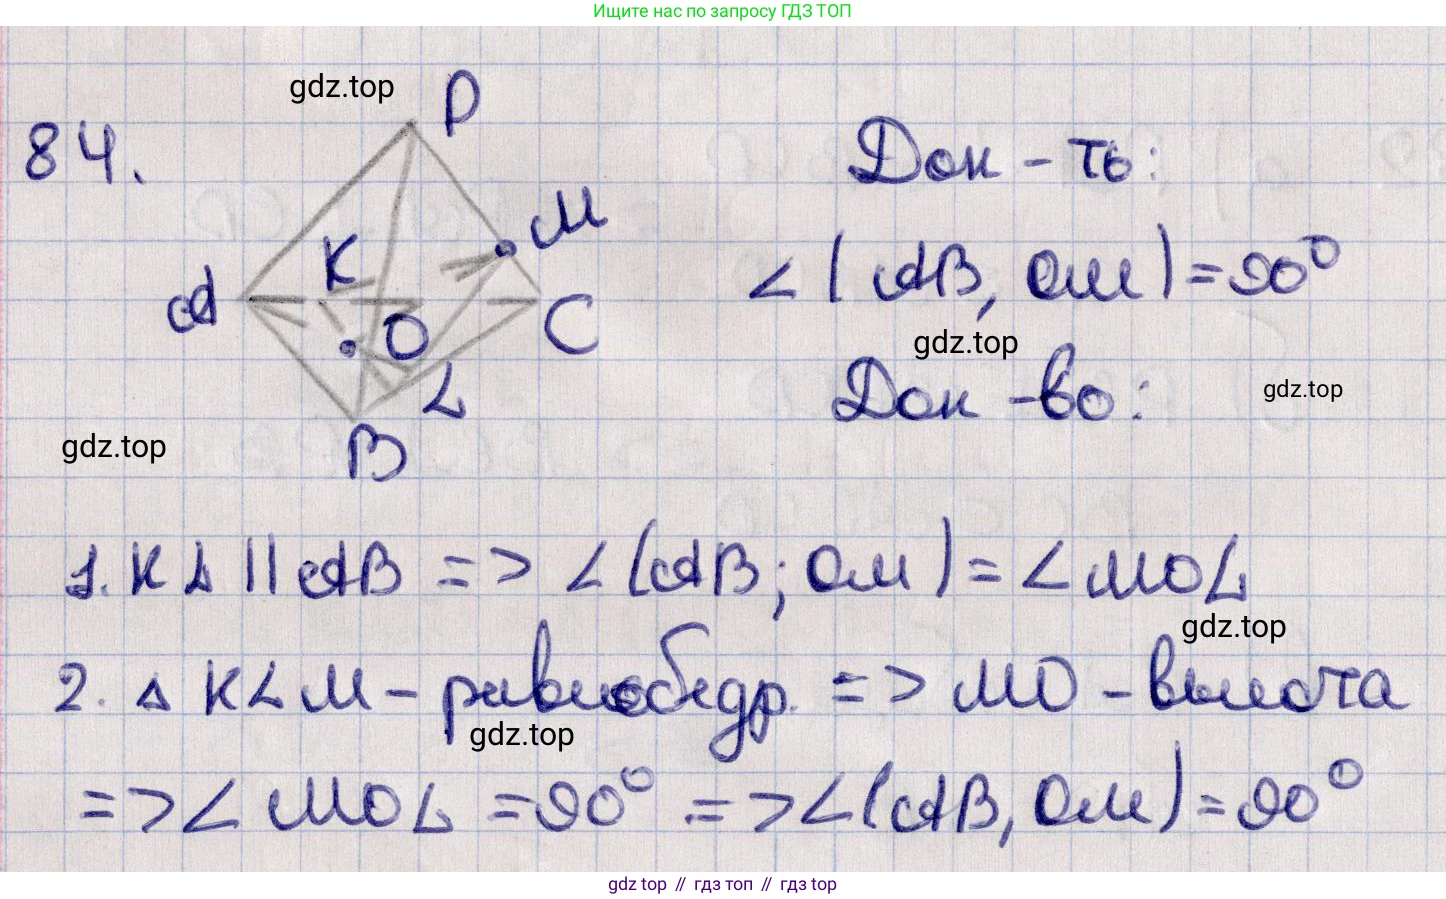 Ищите нас по запросу ГДЗ ТОП
gdz.top
84.
P
M
K
A
O
C
L
B
Док-ть:
∠(AB, OM)=90°
gdz.top
Док-во:
gdz.top
gdz.top
1. KL || AB => ∠(AB; OM)=∠MOL
gdz.top
2. △KLM - равнобедр. => MO - высота
gdz.top
=> ∠MOL =90° => ∠(AB, OM)=90°
gdz top // гдз топ // гдз top